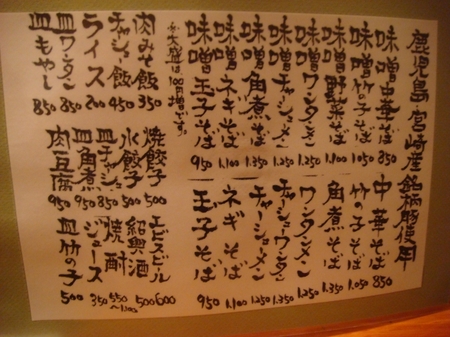 鹿児島、宮崎産銘柄豚使用
味噌中華そば 850
味噌竹の子そば 1.050
味噌野菜そば 1.100
味噌ワンタンメン 1.200
味噌チャーシューメン 1.250
味噌角煮そば 1.350
味噌ネギそば 1.100
味噌玉子そば 950
※大盛は100円増です。
中華そば 850
竹の子そば 1.050
角煮そば 1.350
ワンタンメン 1.200
チャーシューワンタン 1.350
チャーシューメン 1.250
ネギそば 1.100
玉子そば 950
肉みそ飯 350
チャシュー飯 450
ライス 200
皿ワンタン 850
皿もやし 850
焼餃子 500
水餃子 500
皿チャーシュー 850
皿角煮 950
肉豆腐 950
エビスビール 600
紹興酒 500
焼酎 550〜1.100
ジュース 350
皿竹の子 500